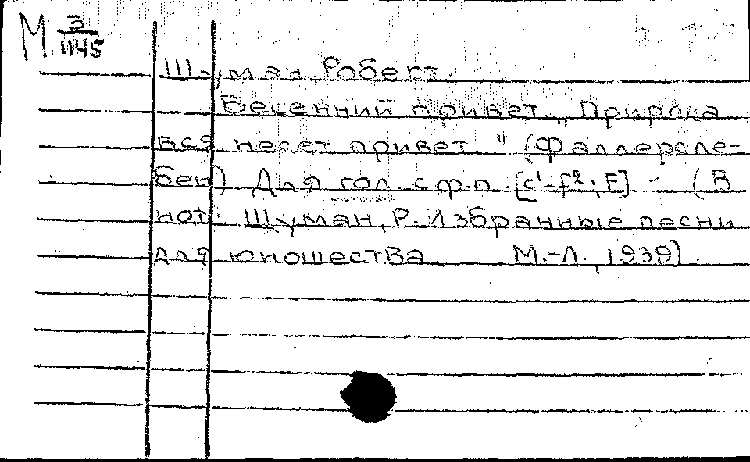 М 3/1145
Шуман Роберт.
Весенний привет. „Природа
вся несет привет." (Фаллерсле-
бен) Для гол. с ф.п. [c¹-f²; F] - (В
нот: Шуман, Р. Избранные песни
для юношества М.-Л., 1939)